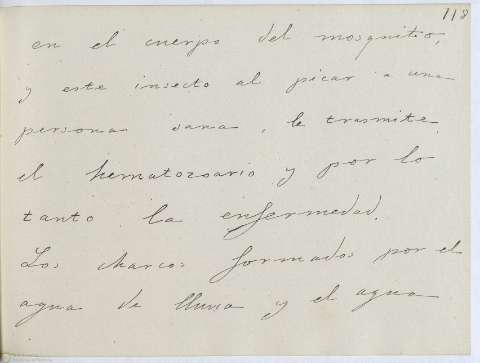 118
en el cuerpo del mosquito,
y este insecto al picar a una
persona sana, le trasmite
el hematozoario y por lo
tanto la enfermedad.
Los charcos formados por el
agua de lluvia y el agua